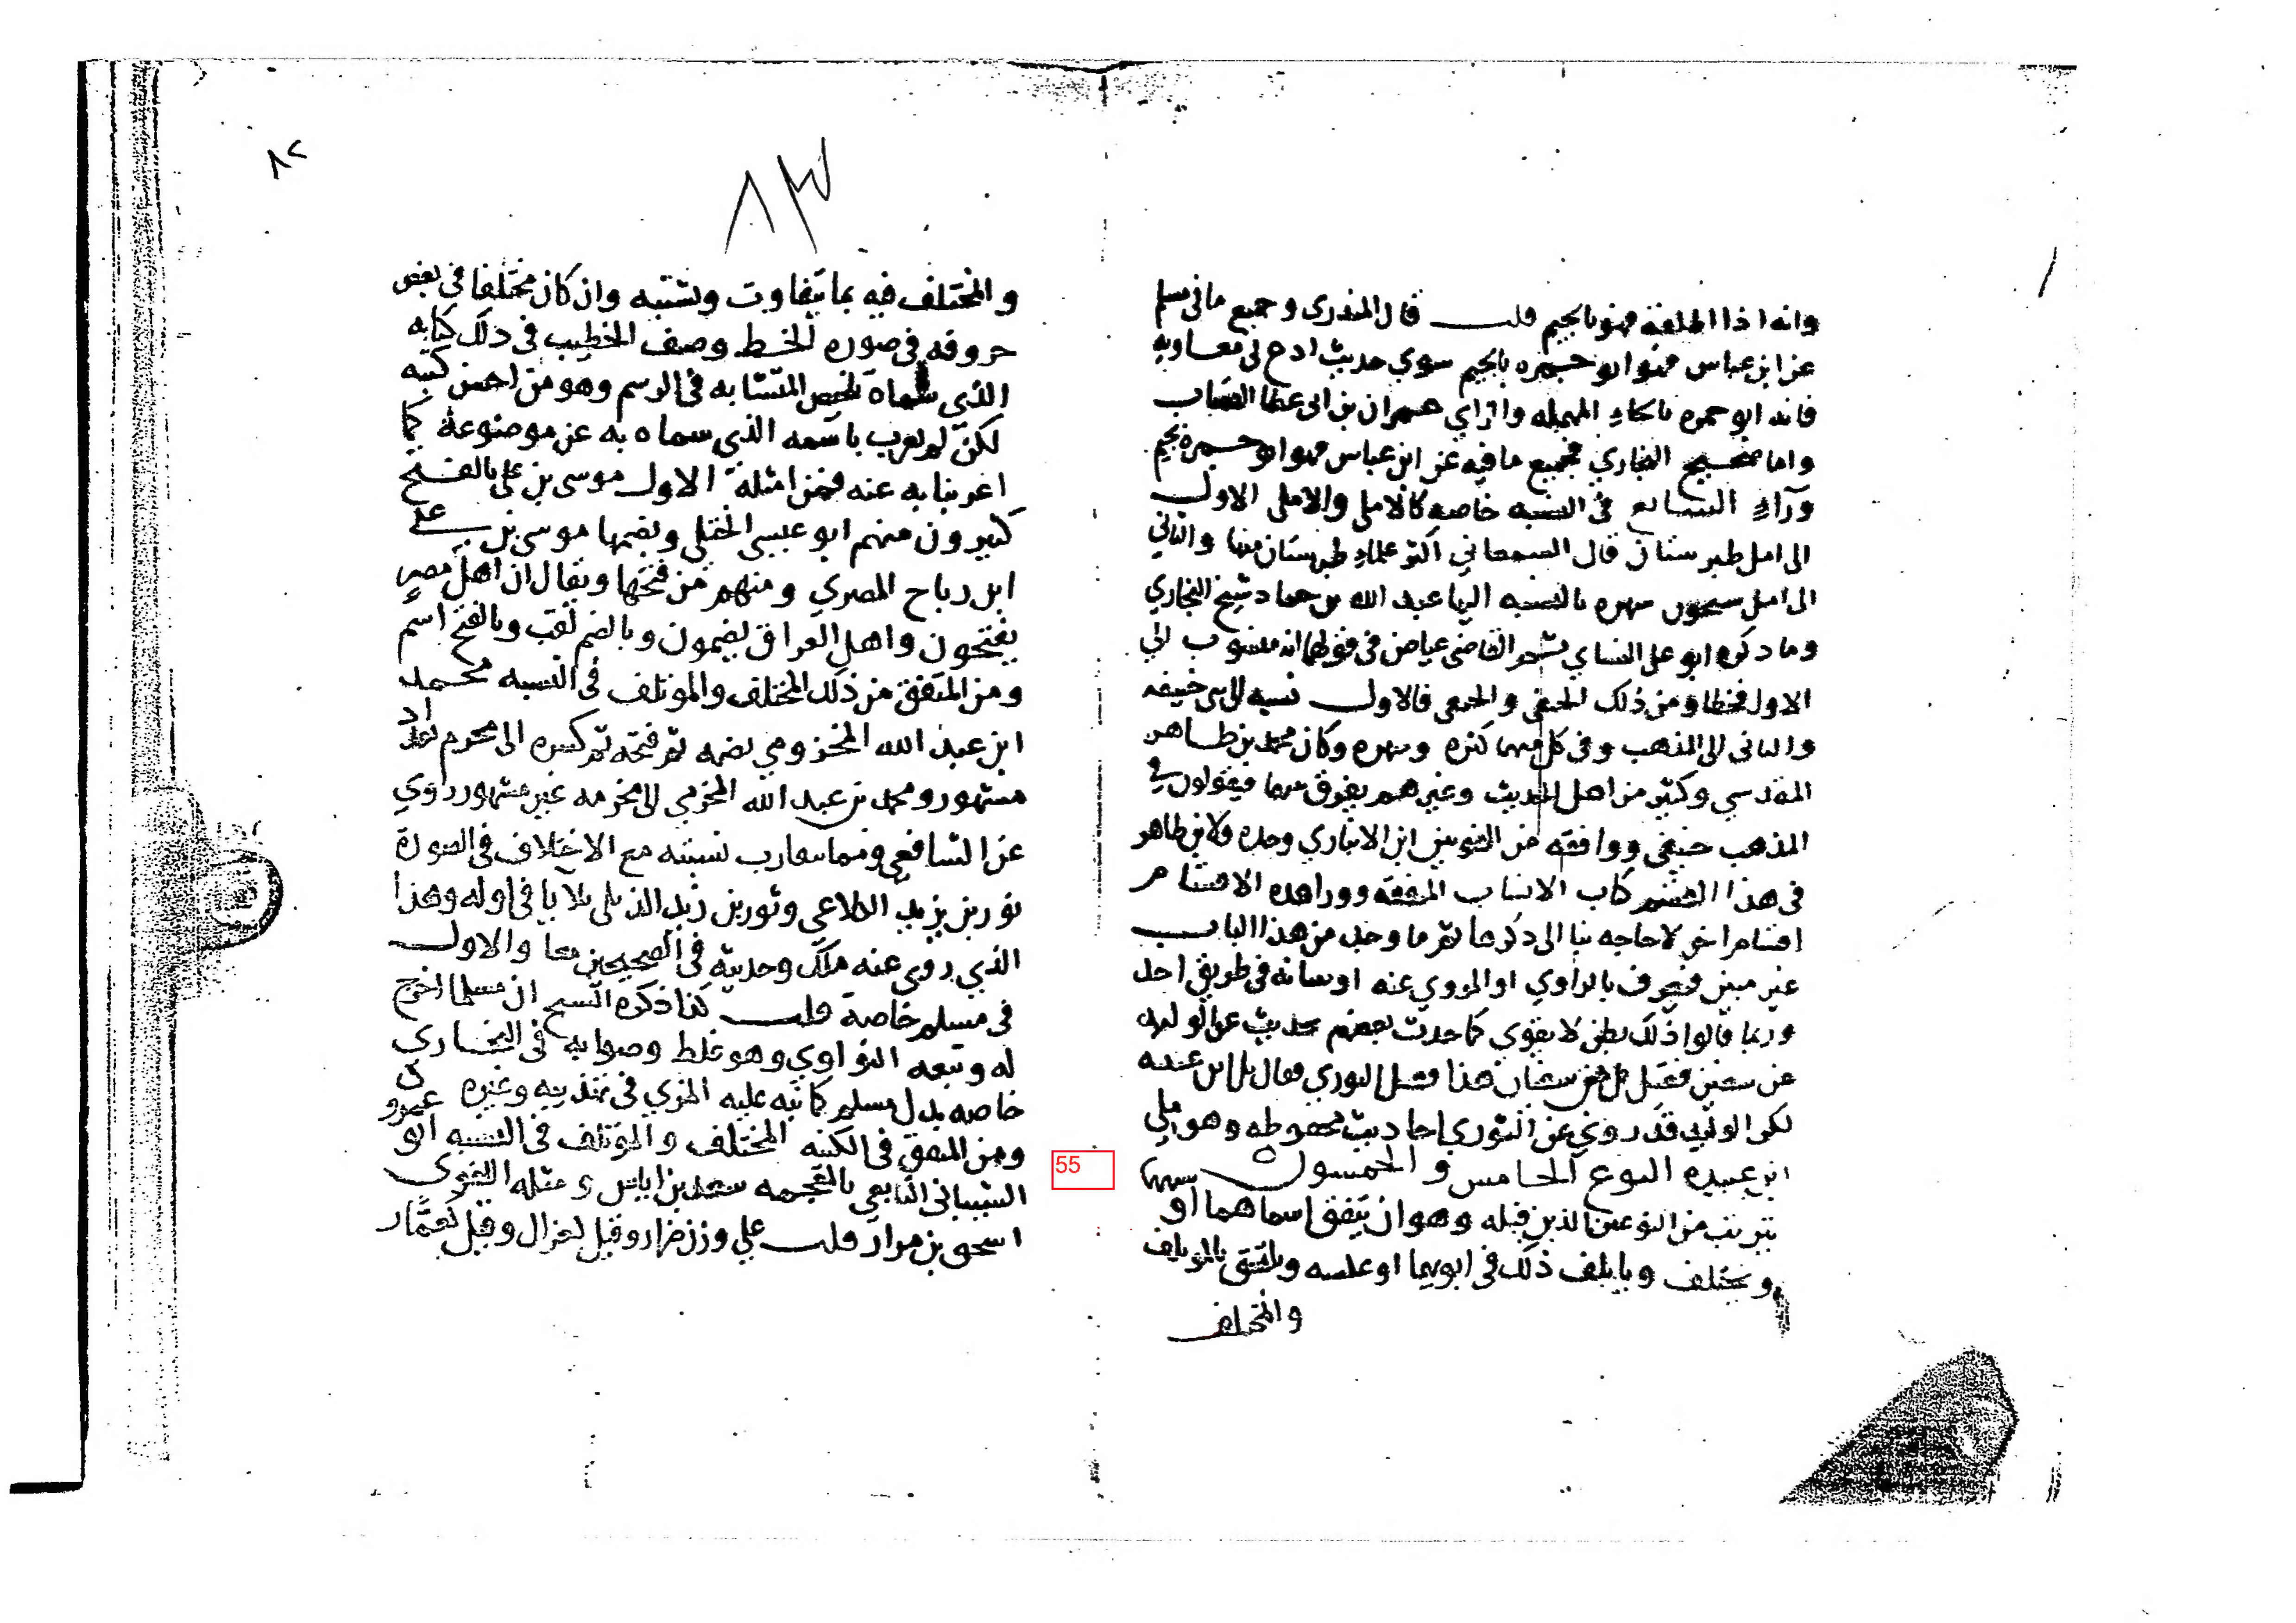 وانه اذا اطلقه فهو بالجيم قلت قال المنذري وجميع ما في مسلم
عن ابن عباس فهو ابو جمره بالجيم سوي حديث ادع لي معاويه
فانه ابو حمزه بالحاء المهمله والزاي عمران بن ابي عطا القصاب
واما صحيح البخاري فجميع ما فيه عن ابن عباس فهو ابو جمره بجيم
وراء السابع في النسبه خاصه كالاملي والاملي الاول
الى امل طبرستان قال السمعاني اكثر علماء طبرستان منها والثاني
الى امل جيحون شهره بالنسبه اليها عبد الله بن حماد شيخ البخاري
وما ذكره ابو علي الغساني ثم القاضي عياض في قولهما انه منسوب الي
الاول فخطا ومن ذلك الحنفي والحنفي فالاول نسبه الى بني حنيفه
والثاني الى المذهب وفي كل منهما كثره وشهره وكان محمد بن طاهر
المقدسي وكثير من اهل الحديث وغيرهم يفرق بينهما فيقولون في
المذهب حنيفي ووافقه من النحويين ابن الانباري وحده ولابن طاهر
في هذا القسم كتاب الانساب المتفقه ووراء هذه الاقسام
اقسام اخر لا حاجه بنا الى ذكرها ثم ما وجد من هذا الباب
غير مبين فيعرف بالراوي او المروي عنه او ببيانه في طريق احد
وربما قالوا ذلك بظن لا يقوي كما حدث بعضهم بحديث عن الوليد
عن سفين فقيل من سفيان هذا فقيل الثوري فقال بل ابن عيينه
لكن الوليد قد روي عن الثوري احاديث محفوظه وهو ملي
ابن عيينه النوع الخامس والخمسون
يتركب من النوعين الذين قبله وهو ان يتفق اسماهما او
ويختلف وياتلف ذلك في ابويهما او عكسه ويلتحق بالموتلف
والمختلف
٨٢
٨٣
والمختلف فيه بما يتفاوت ويشتبه وان كان مختلفا في بعض
حروفه في صوره الخط وصنف الخطيب في ذلك كتابه
الذي سماه تلخيص المتشابه في الرسم وهو من احسن كتبه
لكن لم يعرب باسمه الذي سماه به عن موضوعه كما
اعربنا به عنه فمن امثلة الاول موسى بن علي بالفتح
كثيرون منهم ابو عيسى الختلي وبضمها موسى بن علي
ابن رباح المصري ومنهم من فتحها ويقال ان اهل مصر
يفتحون واهل العراق يضمون وبالضم لقب وبالفتح اسم
ومن المتفق من ذلك المختلف والموتلف في النسبه محمد
ابن عبد الله المخرمي بضمه ثم فتحه ثم كسره الى مخرم بغداد
مشهور ومحمد بن عبد الله المخرمي الى مخرمه غير مشهور روي
عن الشافعي ومما يتقارب نسبته مع الاختلاف في الصورة
ثور بن يزيد الكلاعي وثور بن زيد الديلي بلا يا في اوله وهذا
الذي روى عنه ملك وحديثه في الصحيحين معا والاول
في مسلم خاصة قلت كذا ذكره الشيخ ان مسلما اخرج
له وتبعه النواوي وهو غلط وصوابه في البخاري
خاصه بدل مسلم كما نبه عليه المزي في تهذيبه وغيره
ومن المتفق في الكنيه المختلف والمؤتلف في النسبه ابو عمرو
الشيباني التابعي بالمعجمه سعد بن اياس ومثله اللغوي
اسحق بن مرار قلت على وزن ضرار وقيل لغزال وقيل كعمار
55